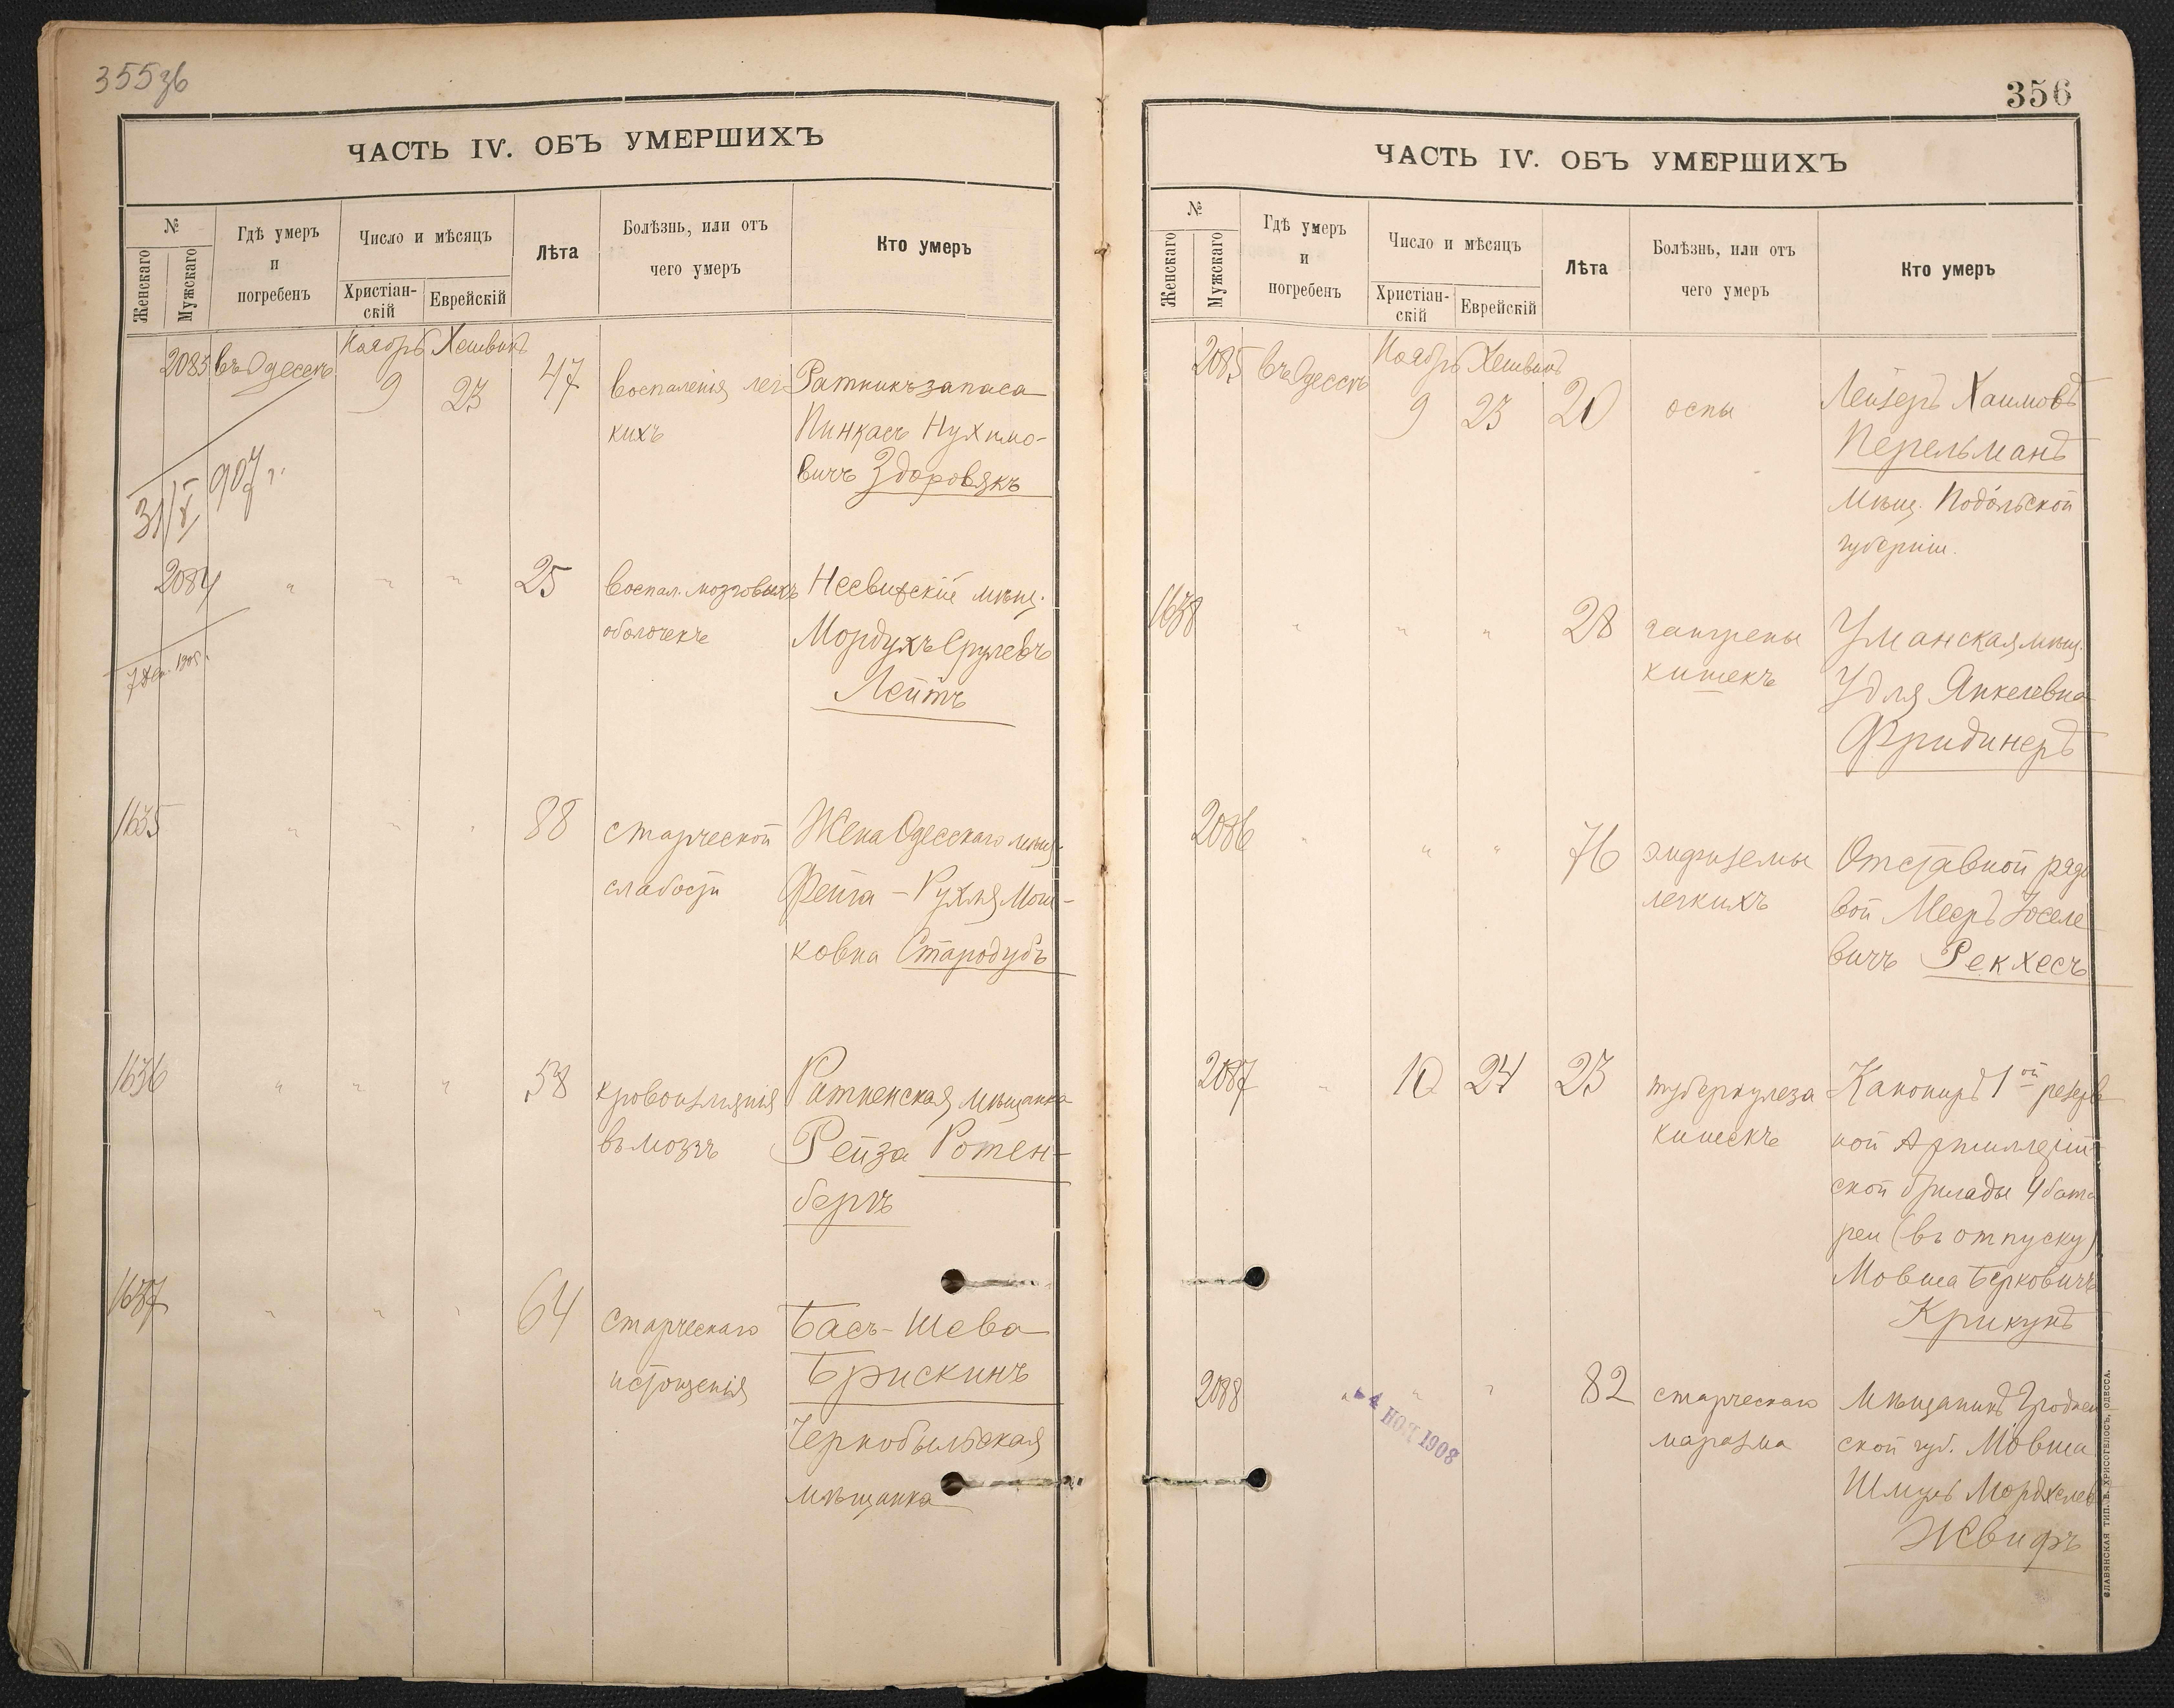 355зв
ЧАСТЬ IV. ОБЪ УМЕРШИХЪ
№
Женскаго
Мужскаго
Гдѣ умеръ
и
погребенъ
Число и мѣсяцъ
Христіан-
скій
Еврейскій
Лѣта
Болѣзнь, или отъ
чего умеръ
Кто умеръ
Ноябрь Хешванъ
2083 въ Одессѣ 9 23 47 воспаленія лег- Ратникъ запаса
кихъ Пинкасъ Нухимо-
вичъ Здоровякъ
31/X 907 г.
2084 " " " 25 воспал. мозговыхъ Несвижскій мѣщ.
оболочекъ Мордухъ Срулевъ
Лейтъ
1635 " " " 88 старческой Жена Одесскаго мѣщ.
слабости Фейга-Рухля Мош-
ковна Стародубъ
1636 " " " 58 кровоизліянія Ратненская мѣщанка
въ мозгъ Рейза Ротен-
бергъ
1637 " " " 64 старческаго Бася-Шева
истощенія Брискинъ
Чернобыльская
мѣщанка
356
ЧАСТЬ IV. ОБЪ УМЕРШИХЪ
№
Женскаго
Мужскаго
Гдѣ умеръ
и
погребенъ
Число и мѣсяцъ
Христіан-
скій
Еврейскій
Лѣта
Болѣзнь, или отъ
чего умеръ
Кто умеръ
Ноябрь Хешванъ
2085 въ Одессѣ 9 23 20 оспы Лейзеръ Хаимовъ
Перельманъ
мѣщ. Подольской
губерніи.
1638 " " " 28 гангрены Уманская мѣщ.
кишекъ Удля Янкелевна
Фридинеръ
2086 " " " 76 эмфиземы Отставной рядо
легкихъ вой Мееръ Іоселе
вичъ Рекхесъ
2087 " 10 24 23 туберкулеза Канониръ 1ой резерв
кишекъ ной Артиллерій
ской бригады 4 бата
реи (въ отпуску)
Мовша Берковичъ
Крикунъ
2088 " " " 82 старческаго Мѣщанинъ Гроднен-
маразма ской губ. Мовша
Шмуль Мордхелев
Жвифъ
4 НОЯ 1908
СЛАВЯНСКАЯ ТИП. Е. ХРИСОГЕЛОСЪ, ОДЕССА.